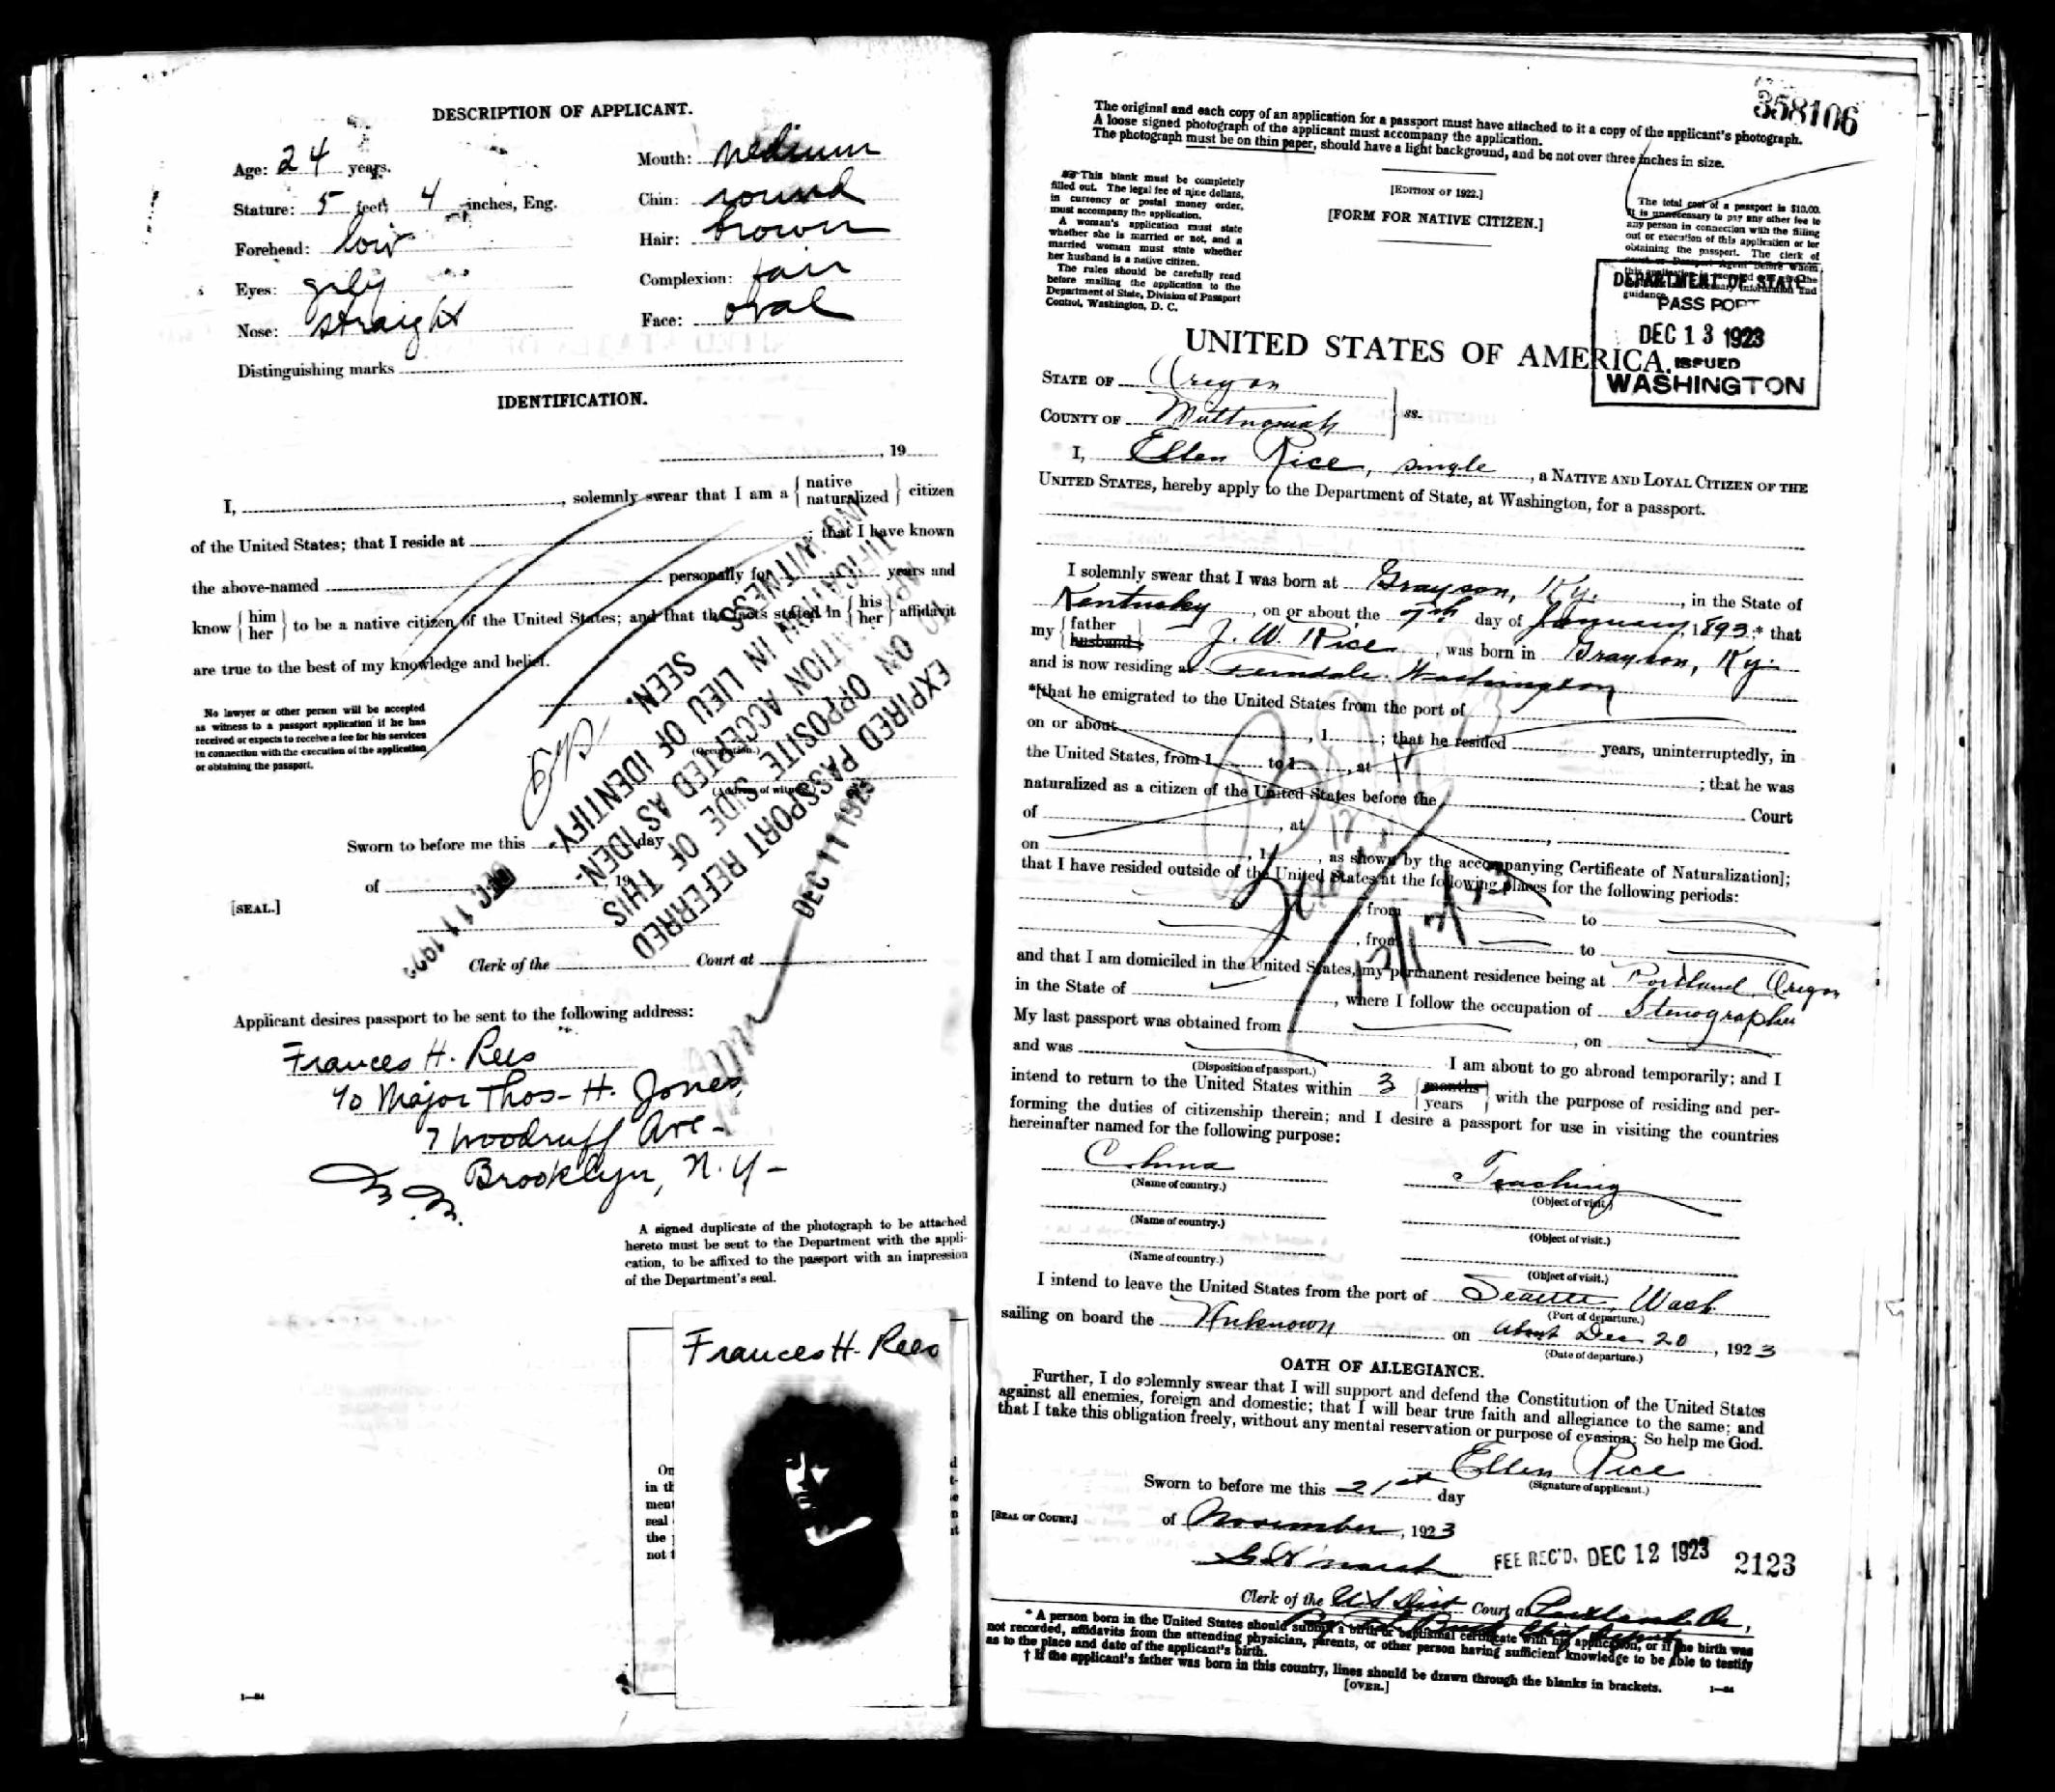 DESCRIPTION OF APPLICANT.
Age: 24 years.
Stature: 5 feet 4 inches, Eng.
Forehead: low
Eyes: grey
Nose: straight
Distinguishing marks
Mouth: Medium
Chin: round
Hair: brown
Complexion: fair
Face: oval
IDENTIFICATION.
, 19
I, , solemnly swear that I am a { native naturalized } citizen
of the United States; that I reside at ; that I have known
the above-named personally for years and
know { him her } to be a native citizen of the United States; and that the facts stated in { his her } affidavit
are true to the best of my knowledge and belief.
No lawyer or other person will be accepted
as witness to a passport application if he has
received or expects to receive a fee for his services
in connection with the execution of the application
or obtaining the passport.
(Occupation.)
(Address of witness.)
EXPIRED PASSPORT REFERRED
TO ON OPPOSITE SIDE OF THIS
APPLICATION ACCEPTED AS IDEN-
TIFICATION IN LIEU OF IDENTIFY
ING WITNESS SEEN.
DEC 11 1923
DEC 11 1923
Sworn to before me this day
of , 19
[SEAL.]
Clerk of the Court at
Applicant desires passport to be sent to the following address:
Frances H. Rees
c/o Major Thos- H. Jones,
7 Woodruff Ave-
Brooklyn, N.Y-
A signed duplicate of the photograph to be attached
hereto must be sent to the Department with the appli-
cation, to be affixed to the passport with an impression
of the Department's seal.
Frances H. Rees
1—84
358106
The original and each copy of an application for a passport must have attached to it a copy of the applicant's photograph.
A loose signed photograph of the applicant must accompany the application.
The photograph must be on thin paper, should have a light background, and be not over three inches in size.
This blank must be completely
filled out. The legal fee of nine dollars,
in currency or postal money order,
must accompany the application.
A woman's application must state
whether she is married or not, and a
married woman must state whether
her husband is a native citizen.
The rules should be carefully read
before mailing the application to the
Department of State, Division of Passport
Control, Washington, D. C.
[EDITION OF 1922.]
[FORM FOR NATIVE CITIZEN.]
The total cost of a passport is $10.00.
It is unnecessary to pay any other fee to
any person in connection with the filling
out or execution of this application or for
obtaining the passport. The clerk of
DEPARTMENT OF STATE
PASSPORT
DEC 13 1923
ISSUED
WASHINGTON
UNITED STATES OF AMERICA.
STATE OF Oregon
COUNTY OF Multnomah } ss.
I, Ellen Rice, single, a NATIVE AND LOYAL CITIZEN OF THE
UNITED STATES, hereby apply to the Department of State, at Washington, for a passport.
I solemnly swear that I was born at Grayson, Ky., in the State of
Kentucky, on or about the 7th day of January, 1893;* that
my { father husband } J. W. Rice, was born in Grayson, Ky.
and is now residing at Ferndale, Washington
*[that he emigrated to the United States from the port of
on or about , 1 ; that he resided years, uninterruptedly, in
the United States, from 1 to 1 , at
naturalized as a citizen of the United States before the ; that he was
of , at , Court
on , 1 , as shown by the accompanying Certificate of Naturalization];
that I have resided outside of the United States at the following places for the following periods:
, from to
, from to
and that I am domiciled in the United States, my permanent residence being at Portland, Oregon
in the State of , where I follow the occupation of Stenographer
My last passport was obtained from , on
and was I am about to go abroad temporarily; and I
(Disposition of passport.)
intend to return to the United States within 3 { months years } with the purpose of residing and per-
forming the duties of citizenship therein; and I desire a passport for use in visiting the countries
hereinafter named for the following purpose:
China Teaching
(Name of country.) (Object of visit.)
(Name of country.) (Object of visit.)
(Name of country.) (Object of visit.)
I intend to leave the United States from the port of Seattle, Wash.
(Port of departure.)
sailing on board the Unknown on about Dec 20, 1923
(Date of departure.)
OATH OF ALLEGIANCE.
Further, I do solemnly swear that I will support and defend the Constitution of the United States
against all enemies, foreign and domestic; that I will bear true faith and allegiance to the same; and
that I take this obligation freely, without any mental reservation or purpose of evasion: So help me God.
Ellen Rice
(Signature of applicant.)
Sworn to before me this 21st day
[SEAL OF COURT.] of November, 1923
G H Marsh
FEE REC'D. DEC 12 1923 2123
Clerk of the U S Dist Court at Portland, Or,
* A person born in the United States should submit a birth or baptismal certificate with his application, or if the birth was
not recorded, affidavits from the attending physician, parents, or other person having sufficient knowledge to be able to testify
as to the place and date of the applicant's birth.
† If the applicant's father was born in this country, lines should be drawn through the blanks in brackets.
[OVER.] 1—84